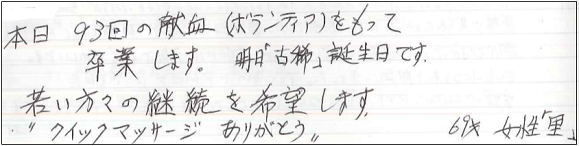 本日 93回の献血(ボランティア)をもって
卒業します。 明日「古稀」誕生日です.
若い方々の継続を希望します.
"クイックマッサージ ありがとう„
69才 女性「里」